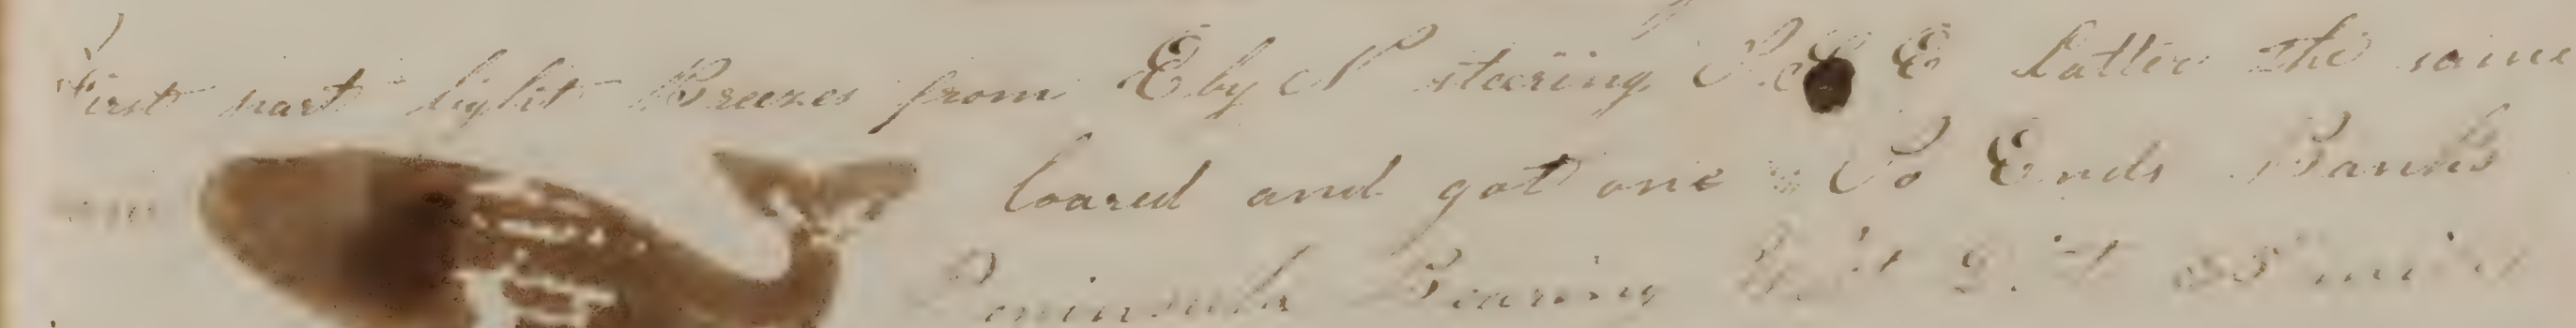 First part light Breezes from E by N steering S.E Latter the same
Loared and got one So Ends Banks
Peninsula Bearing